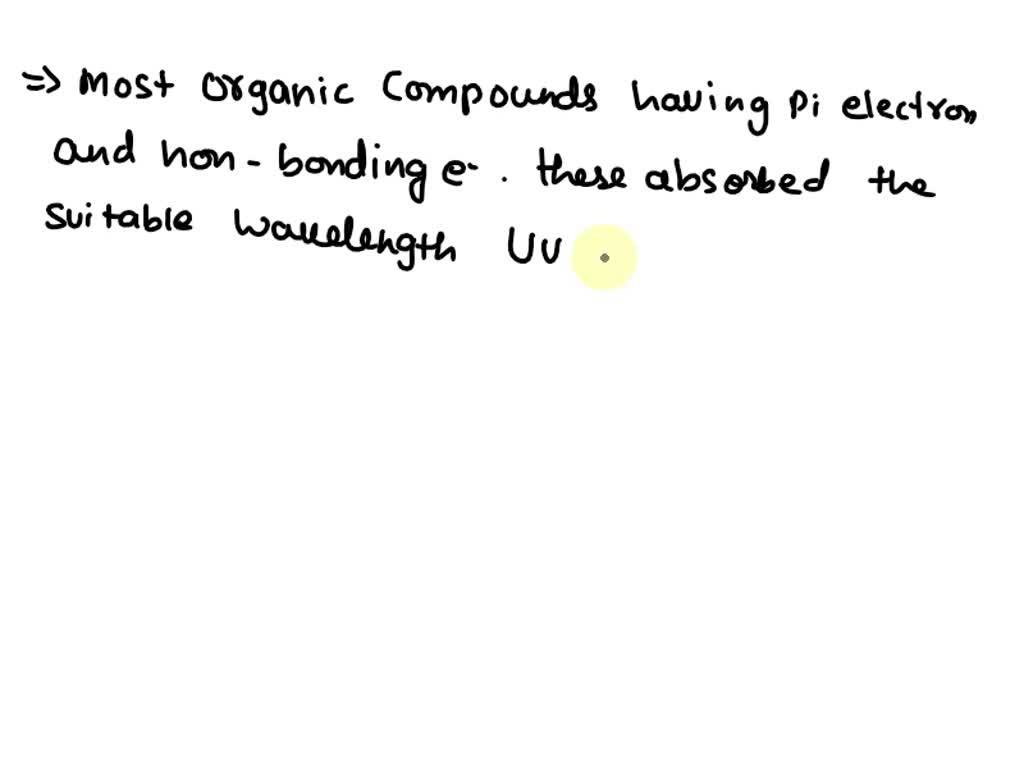 => Most organic Compounds having Pi electron
and non-bonding e-. these absorbed the
suitable wavelength UV